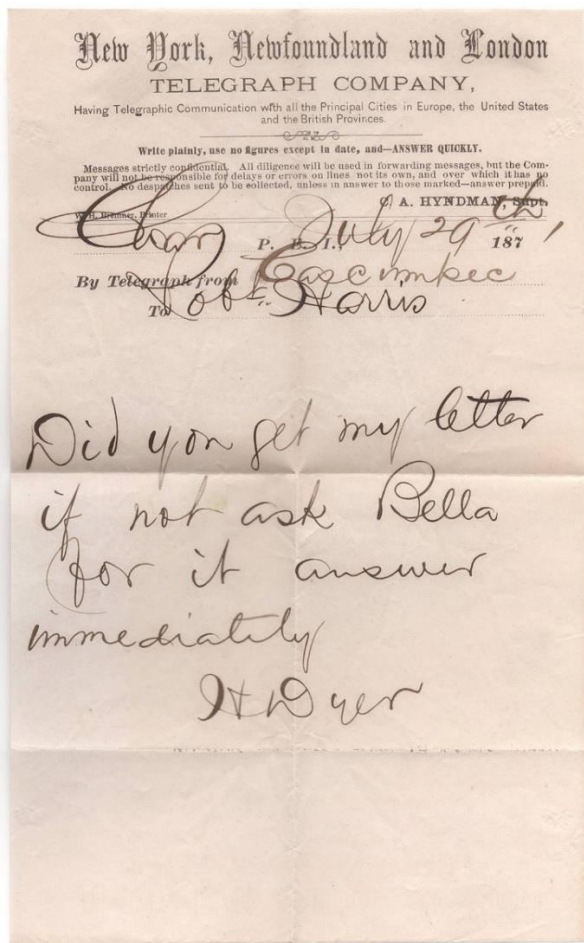 New York, Newfoundland and London
TELEGRAPH COMPANY,
Having Telegraphic Communication with all the Principal Cities in Europe, the United States
and the British Provinces.
Write plainly, use no figures except in date, and—ANSWER QUICKLY.
Messages strictly confidential. All diligence will be used in forwarding messages, but the Com-
pany will not be responsible for delays or errors on lines not its own, and over which it has no
control. No despatches sent to be collected, unless in answer to those marked—answer prepaid.
A. HYNDMAN, Supt.
W. H. Bremner, Printer
P. E. I., July 29th 187
By Telegraph from Cascumpec
To Robt Harris
Did you get my letter
if not ask Bella
for it answer
immediately
H Dyer